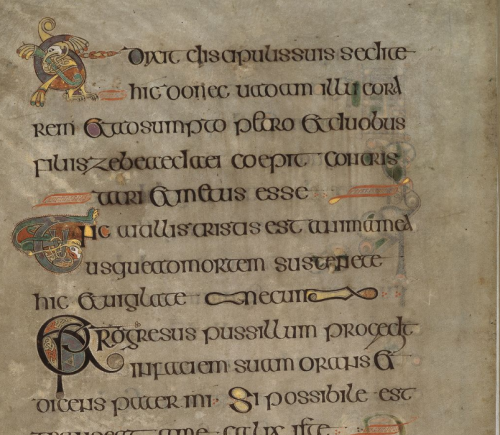 Et dixit discipulis suis sedite
hic donec uadam illuc ora
rem & adsumpto petro & duobus
filiis zebedaei coepit contris
tari & mestus esse
Tunc ait illis tristis est anima mea
usque ad mortem sustenete
hic & uigilate mecum
Et progresus pussillum procedit
in faciem suam orans &
dicens pater mi Si possibile est
transeat a me calix iste